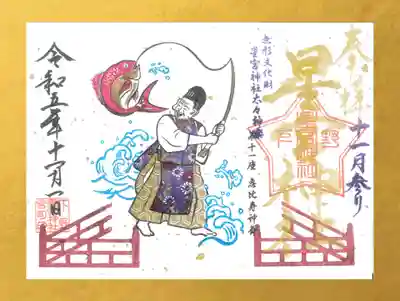 奉拝
十一月参り
星宮神社
下野
星宮神社
無形文化財
星宮神社太々神楽 十一座 恵比寿神
令和五年十一月一日